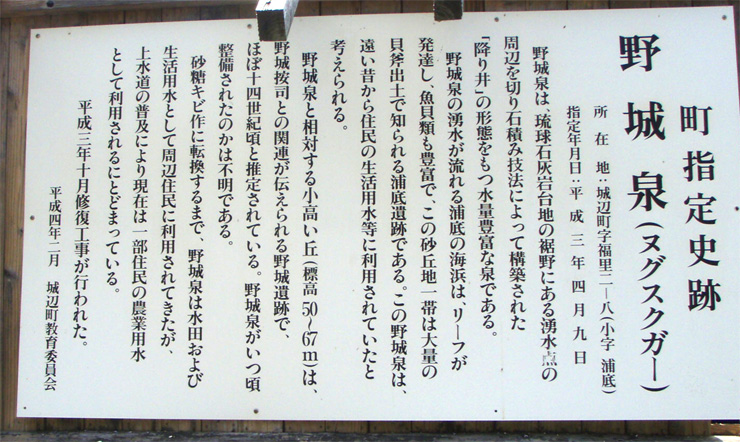 町指定史跡
野城泉(ヌグスクガー)
所在地:城辺町字福里二―八(小字 浦底)
指定年月日:平成三年四月九日
野城泉は、琉球石灰岩台地の裾野にある湧水点の
周辺を切り石積み技法によって構築された
「降り井」の形態をもつ水量豊富な泉である。
野城泉の湧水が流れる浦底の海浜は、リーフが
発達し、魚貝類も豊富で、この砂丘地一帯は大量の
貝斧出土で知られる浦底遺跡である。この野城泉は、
遠い昔から住民の生活用水等に利用されていたと
考えられる。
野城泉と相対する小高い丘(標高50~67m)は、
野城按司との関連が伝えられる野城遺跡で、
ほぼ十四世紀頃と推定されている。野城泉がいつ頃
整備されたのかは不明である。
砂糖キビ作に転換するまで、野城泉は水田および
生活用水として周辺住民に利用されてきたが、
上水道の普及により現在は一部住民の農業用水
として利用されるにとどまっている。
平成三年十月修復工事が行われた。
平成四年二月 城辺町教育委員会